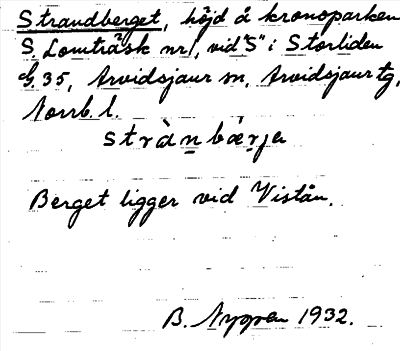 Strandberget, höjd å kronoparken
S. Lomträsk nr 1, vid "S" i Storliden
G. 35, Arvidsjaur sn, Arvidsjaur tg,
Norrb. l.
stràn bæ̀rjɐ
Berget ligger vid Vistån.
B. Nygren 1932.